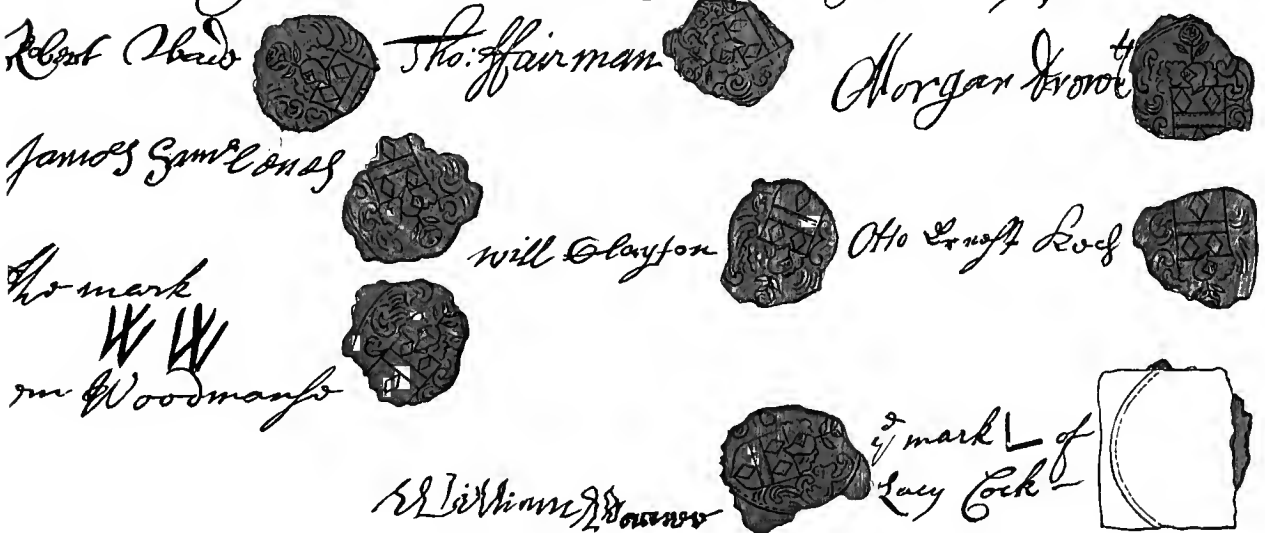 Robert Wade
Tho: ffairman
Morgan Drewet
James Sandelands
Will Clayton
Otto Ernest Koch
The mark
W W
Woodmanse
William Warner
ye mark L of
Lacy Cock